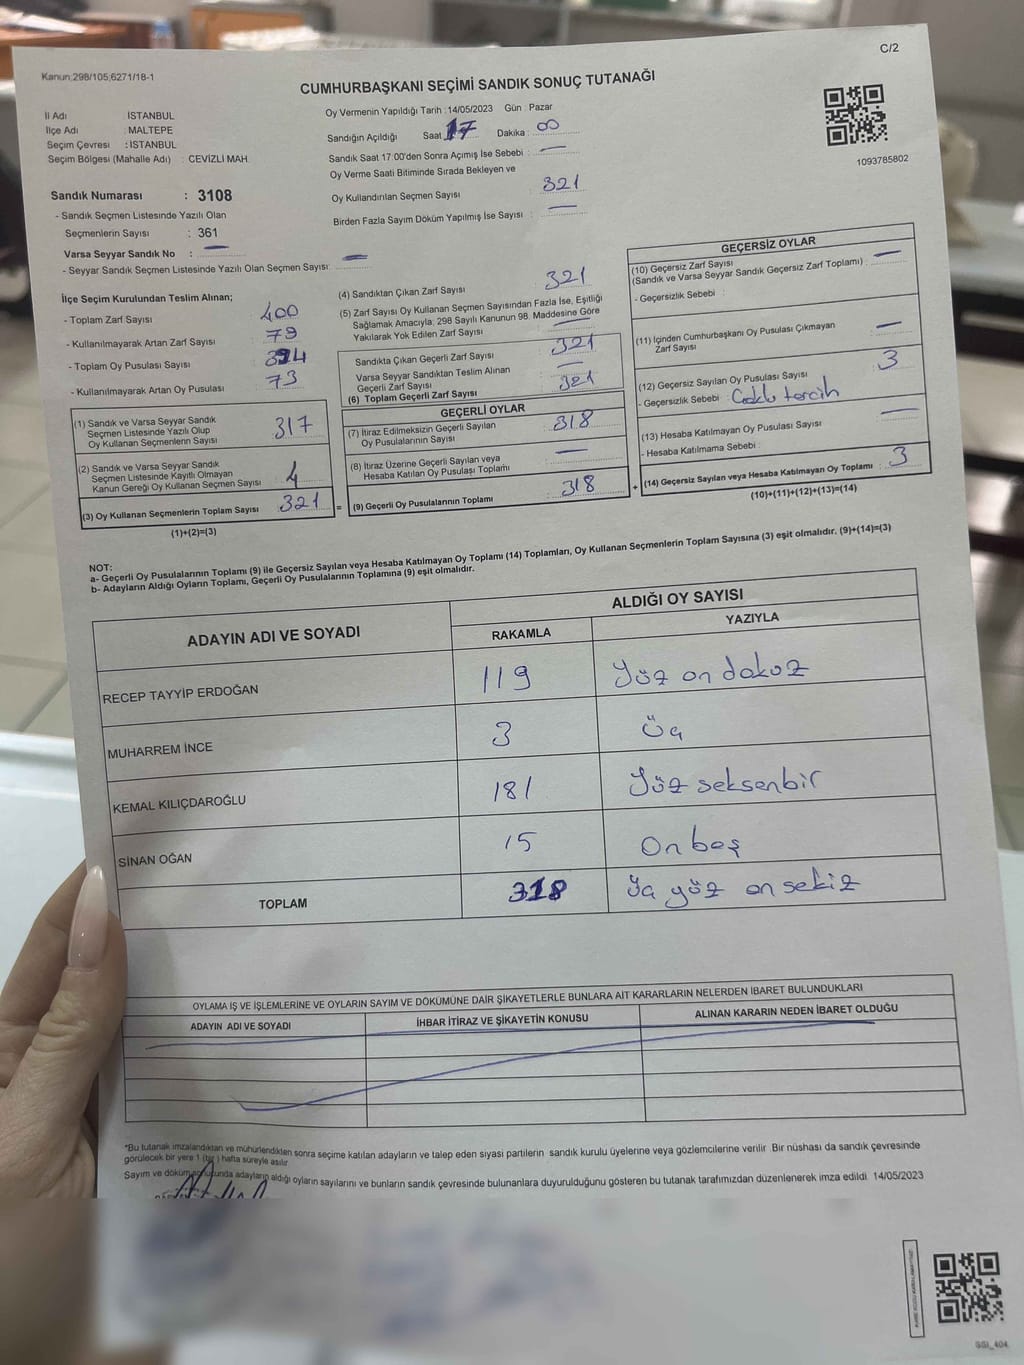 C/2
Kanun;298/105;6271/18-1
CUMHURBAŞKANI SEÇİMİ SANDIK SONUÇ TUTANAĞI
İl Adı İSTANBUL
İlçe Adı : MALTEPE
Seçim Çevresi : İSTANBUL
Seçim Bölgesi (Mahalle Adı) : CEVİZLİ MAH.
Oy Vermenin Yapıldığı Tarih : 14/05/2023 Gün : Pazar
Sandığın Açıldığı Saat 17 Dakika : 00
Sandık Saat 17:00'den Sonra Açımış İse Sebebi : —
Oy Verme Saati Bitiminde Sırada Bekleyen ve
Oy Kullandırılan Seçmen Sayısı 321
Birden Fazla Sayım Döküm Yapılmış İse Sayısı : —
1093785802
Sandık Numarası : 3108
- Sandık Seçmen Listesinde Yazılı Olan
Seçmenlerin Sayısı : 361
Varsa Seyyar Sandık No : —
- Seyyar Sandık Seçmen Listesinde Yazılı Olan Seçmen Sayısı: —
İlçe Seçim Kurulundan Teslim Alınan;
- Toplam Zarf Sayısı 400
- Kullanılmayarak Artan Zarf Sayısı : 79
- Toplam Oy Pusulası Sayısı 394
- Kullanılmayarak Artan Oy Pusulası 73
(1) Sandık ve Varsa Seyyar Sandık
Seçmen Listesinde Yazılı Olup
Oy Kullanan Seçmenlerin Sayısı 317
(2) Sandık ve Varsa Seyyar Sandık
Seçmen Listesinde Kayıtlı Olmayan
Kanun Gereği Oy Kullanan Seçmen Sayısı 4
(3) Oy Kullanan Seçmenlerin Toplam Sayısı 321
(1)+(2)=(3)
(4) Sandıktan Çıkan Zarf Sayısı 321
(5) Zarf Sayısı Oy Kullanan Seçmen Sayısından Fazla İse, Eşitliği
Sağlamak Amacıyla, 298 Sayılı Kanunun 98. Maddesine Göre
Yakılarak Yok Edilen Zarf Sayısı —
Sandıkta Çıkan Geçerli Zarf Sayısı 321
Varsa Seyyar Sandıktan Teslim Alınan
Geçerli Zarf Sayısı —
(6) Toplam Geçerli Zarf Sayısı 321
GEÇERLİ OYLAR
(7) İtiraz Edilmeksizin Geçerli Sayılan
Oy Pusulalarının Sayısı 318
(8) İtiraz Üzerine Geçerli Sayılan veya
Hesaba Katılan Oy Pusulası Toplamı —
= (9) Geçerli Oy Pusulalarının Toplamı 318
GEÇERSİZ OYLAR
(10) Geçersiz Zarf Sayısı
(Sandık ve Varsa Seyyar Sandık Geçersiz Zarf Toplamı) : —
- Geçersizlik Sebebi :
(11) İçinden Cumhurbaşkanı Oy Pusulası Çıkmayan
Zarf Sayısı —
(12) Geçersiz Sayılan Oy Pusulası Sayısı 3
- Geçersizlik Sebebi : Çoklu tercih
(13) Hesaba Katılmayan Oy Pusulası Sayısı —
- Hesaba Katılmama Sebebi :
+ (14) Geçersiz Sayılan veya Hesaba Katılmayan Oy Toplamı : 3
(10)+(11)+(12)+(13)=(14)
NOT:
a- Geçerli Oy Pusulalarının Toplamı (9) ile Geçersiz Sayılan veya Hesaba Katılmayan Oy Toplamı (14) Toplamları, Oy Kullanan Seçmenlerin Toplam Sayısına (3) eşit olmalıdır. (9)+(14)=(3)
b- Adayların Aldığı Oyların Toplamı, Geçerli Oy Pusulalarının Toplamına (9) eşit olmalıdır.
ADAYIN ADI VE SOYADI ALDIĞI OY SAYISI
RAKAMLA YAZIYLA
RECEP TAYYİP ERDOĞAN 119 Yüz on dokuz
MUHARREM İNCE 3 Üç
KEMAL KILIÇDAROĞLU 181 Yüz seksenbir
SİNAN OĞAN 15 On beş
TOPLAM 318 Üç yüz on sekiz
OYLAMA İŞ VE İŞLEMLERİNE VE OYLARIN SAYIM VE DÖKÜMÜNE DAİR ŞİKAYETLERLE BUNLARA AİT KARARLARIN NELERDEN İBARET BULUNDUKLARI
ADAYIN ADI VE SOYADI İHBAR İTİRAZ VE ŞİKAYETİN KONUSU ALINAN KARARIN NEDEN İBARET OLDUĞU
*Bu tutanak imzalandıktan ve mühürlendikten sonra seçime katılan adayların ve talep eden siyasi partilerin sandık kurulu üyelerine veya gözlemcilerine verilir. Bir nüshası da sandık çevresinde
görülecek bir yere 1 (bir) hafta süreyle asılır.
Sayım ve döküm sonucunda adayların aldığı oyların sayılarını ve bunların sandık çevresinde bulunanlara duyurulduğunu gösteren bu tutanak tarafımızdan düzenlenerek imza edildi. 14/05/2023